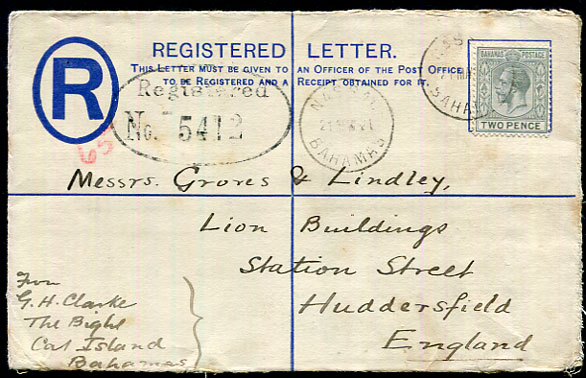 R
REGISTERED LETTER.
THIS LETTER MUST BE GIVEN TO AN OFFICER OF THE POST OFFICE
TO BE REGISTERED AND A RECEIPT OBTAINED FOR IT.
Registered
No. 5412
NASSAU
BAHAMAS
BAHA
BAHAMAS POSTAGE
TWO PENCE
Messrs. Groves & Lindley,
Lion Buildings
Station Street
Huddersfield
England
From
G. H. Clarke
The Bight
Cat Island
Bahamas